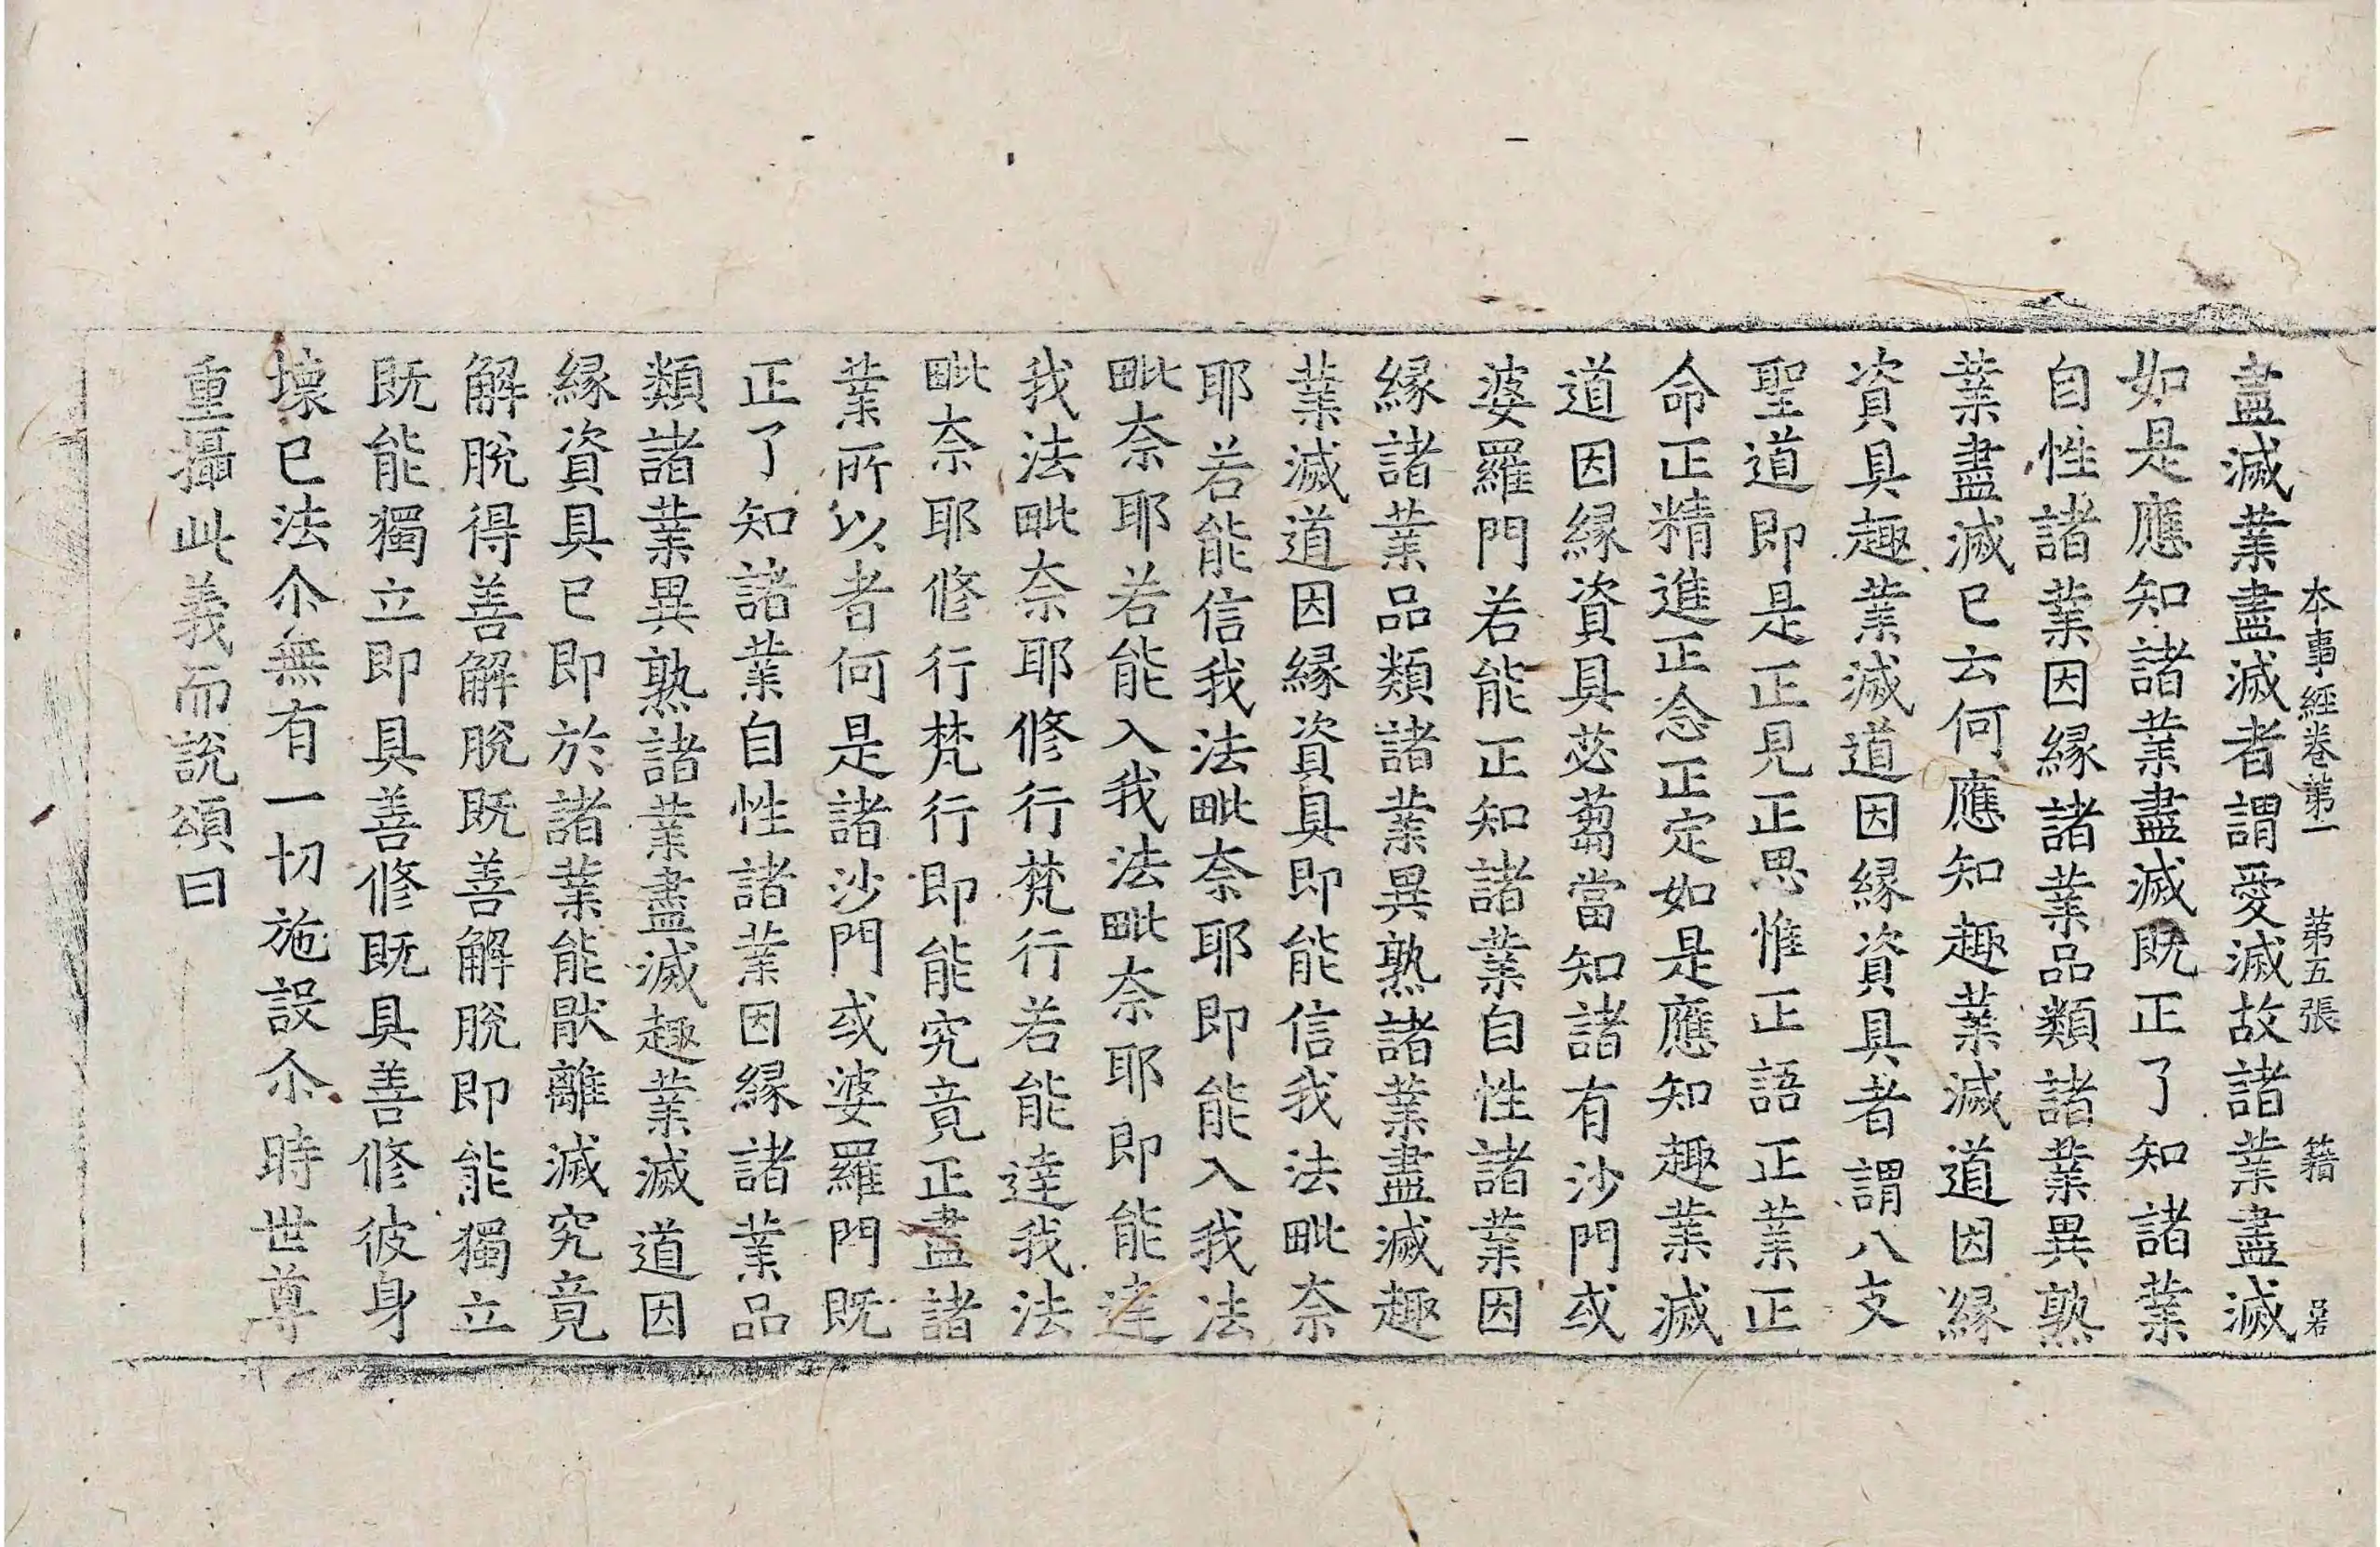 本事經卷第一 第五張 籍
盡滅業盡滅者謂愛滅故諸業盡滅
如是應知諸業盡滅既正了知諸業
自性諸業因緣諸業品類諸業異熟
業盡滅已云何應知趣業滅道因緣
資具趣業滅道因緣資具者謂八支
聖道即是正見正思惟正語正業正
命正精進正念正定如是應知趣業滅
道因緣資具苾蒭當知諸有沙門或
婆羅門若能正知諸業自性諸業因
緣諸業品類諸業異熟諸業盡滅趣
業滅道因緣資具即能信我法毗奈
耶若能信我法毗奈耶即能入我法
毗奈耶若能入我法毗奈耶即能達
我法毗奈耶修行梵行若能達我法
毗奈耶修行梵行即能究竟正盡諸
業所以者何是諸沙門或婆羅門既
正了知諸業自性諸業因緣諸業品
類諸業異熟諸業盡滅趣業滅道因
緣資具已即於諸業能猒離滅究竟
解脫得善解脫既善解脫即能獨立
既能獨立即具善修既具善修彼身
壞已法尒無有一切施設尒時世尊
重攝此義而說頌曰